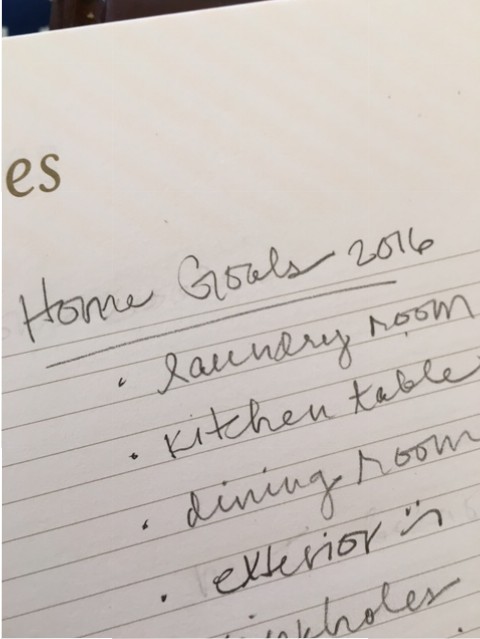 es
Home Goals 2016
• laundry room
• kitchen table
• dining room
• exterior :(